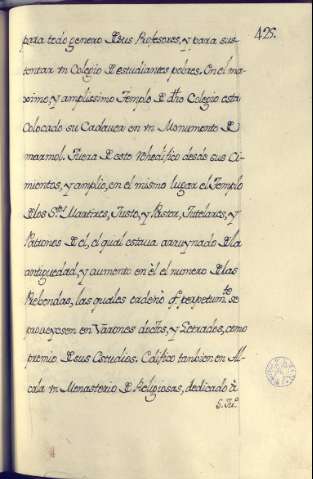 425.
para todo genero de sus Profesores, y para sus-
tentar un Colegio de estudiantes pobres. En el ma-
ximo, y amplissimo Templo de dho Colegio esta
Colocado su Cadaver en un Monumento de
marmol. Fuera de esto rehedifico desde sus Ci-
mientos, y amplio, en el mismo lugar el Templo
de los Stos. Martires, Justo, y Pastor, Tutelares, y
Patrones de él, el qual estava arruynado de la
antiguedad, y aumento en èl el numero de las
Rebendas, las quales ordenò q perpetumte. se
proveyesen en Varones doctos, y Letrados, como
premio de sus Estudios. Edifico tanbien en Al-
cala un Monasterio de Religiosas, dedicado à
S. Jun.